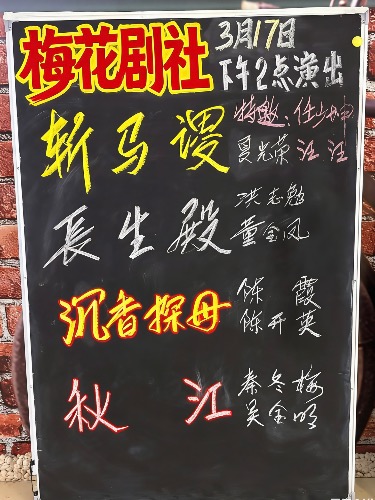 梅花剧社
3月17日
下午2点演出
斩马谡
特邀：任少坤
夏光荣 江江
長生殿
洪志勉
董金凤
沉香探母
陈霞
陈开英
秋江
秦冬梅
吴金明